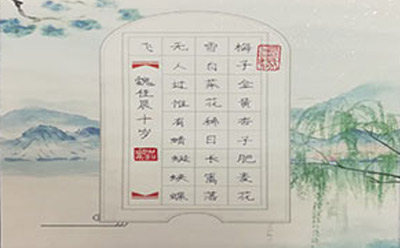 梅子金黄杏子肥麦花
雪白菜花稀日长篱落
无人过惟有蜻蜓蛱蝶
飞
魏晨十岁